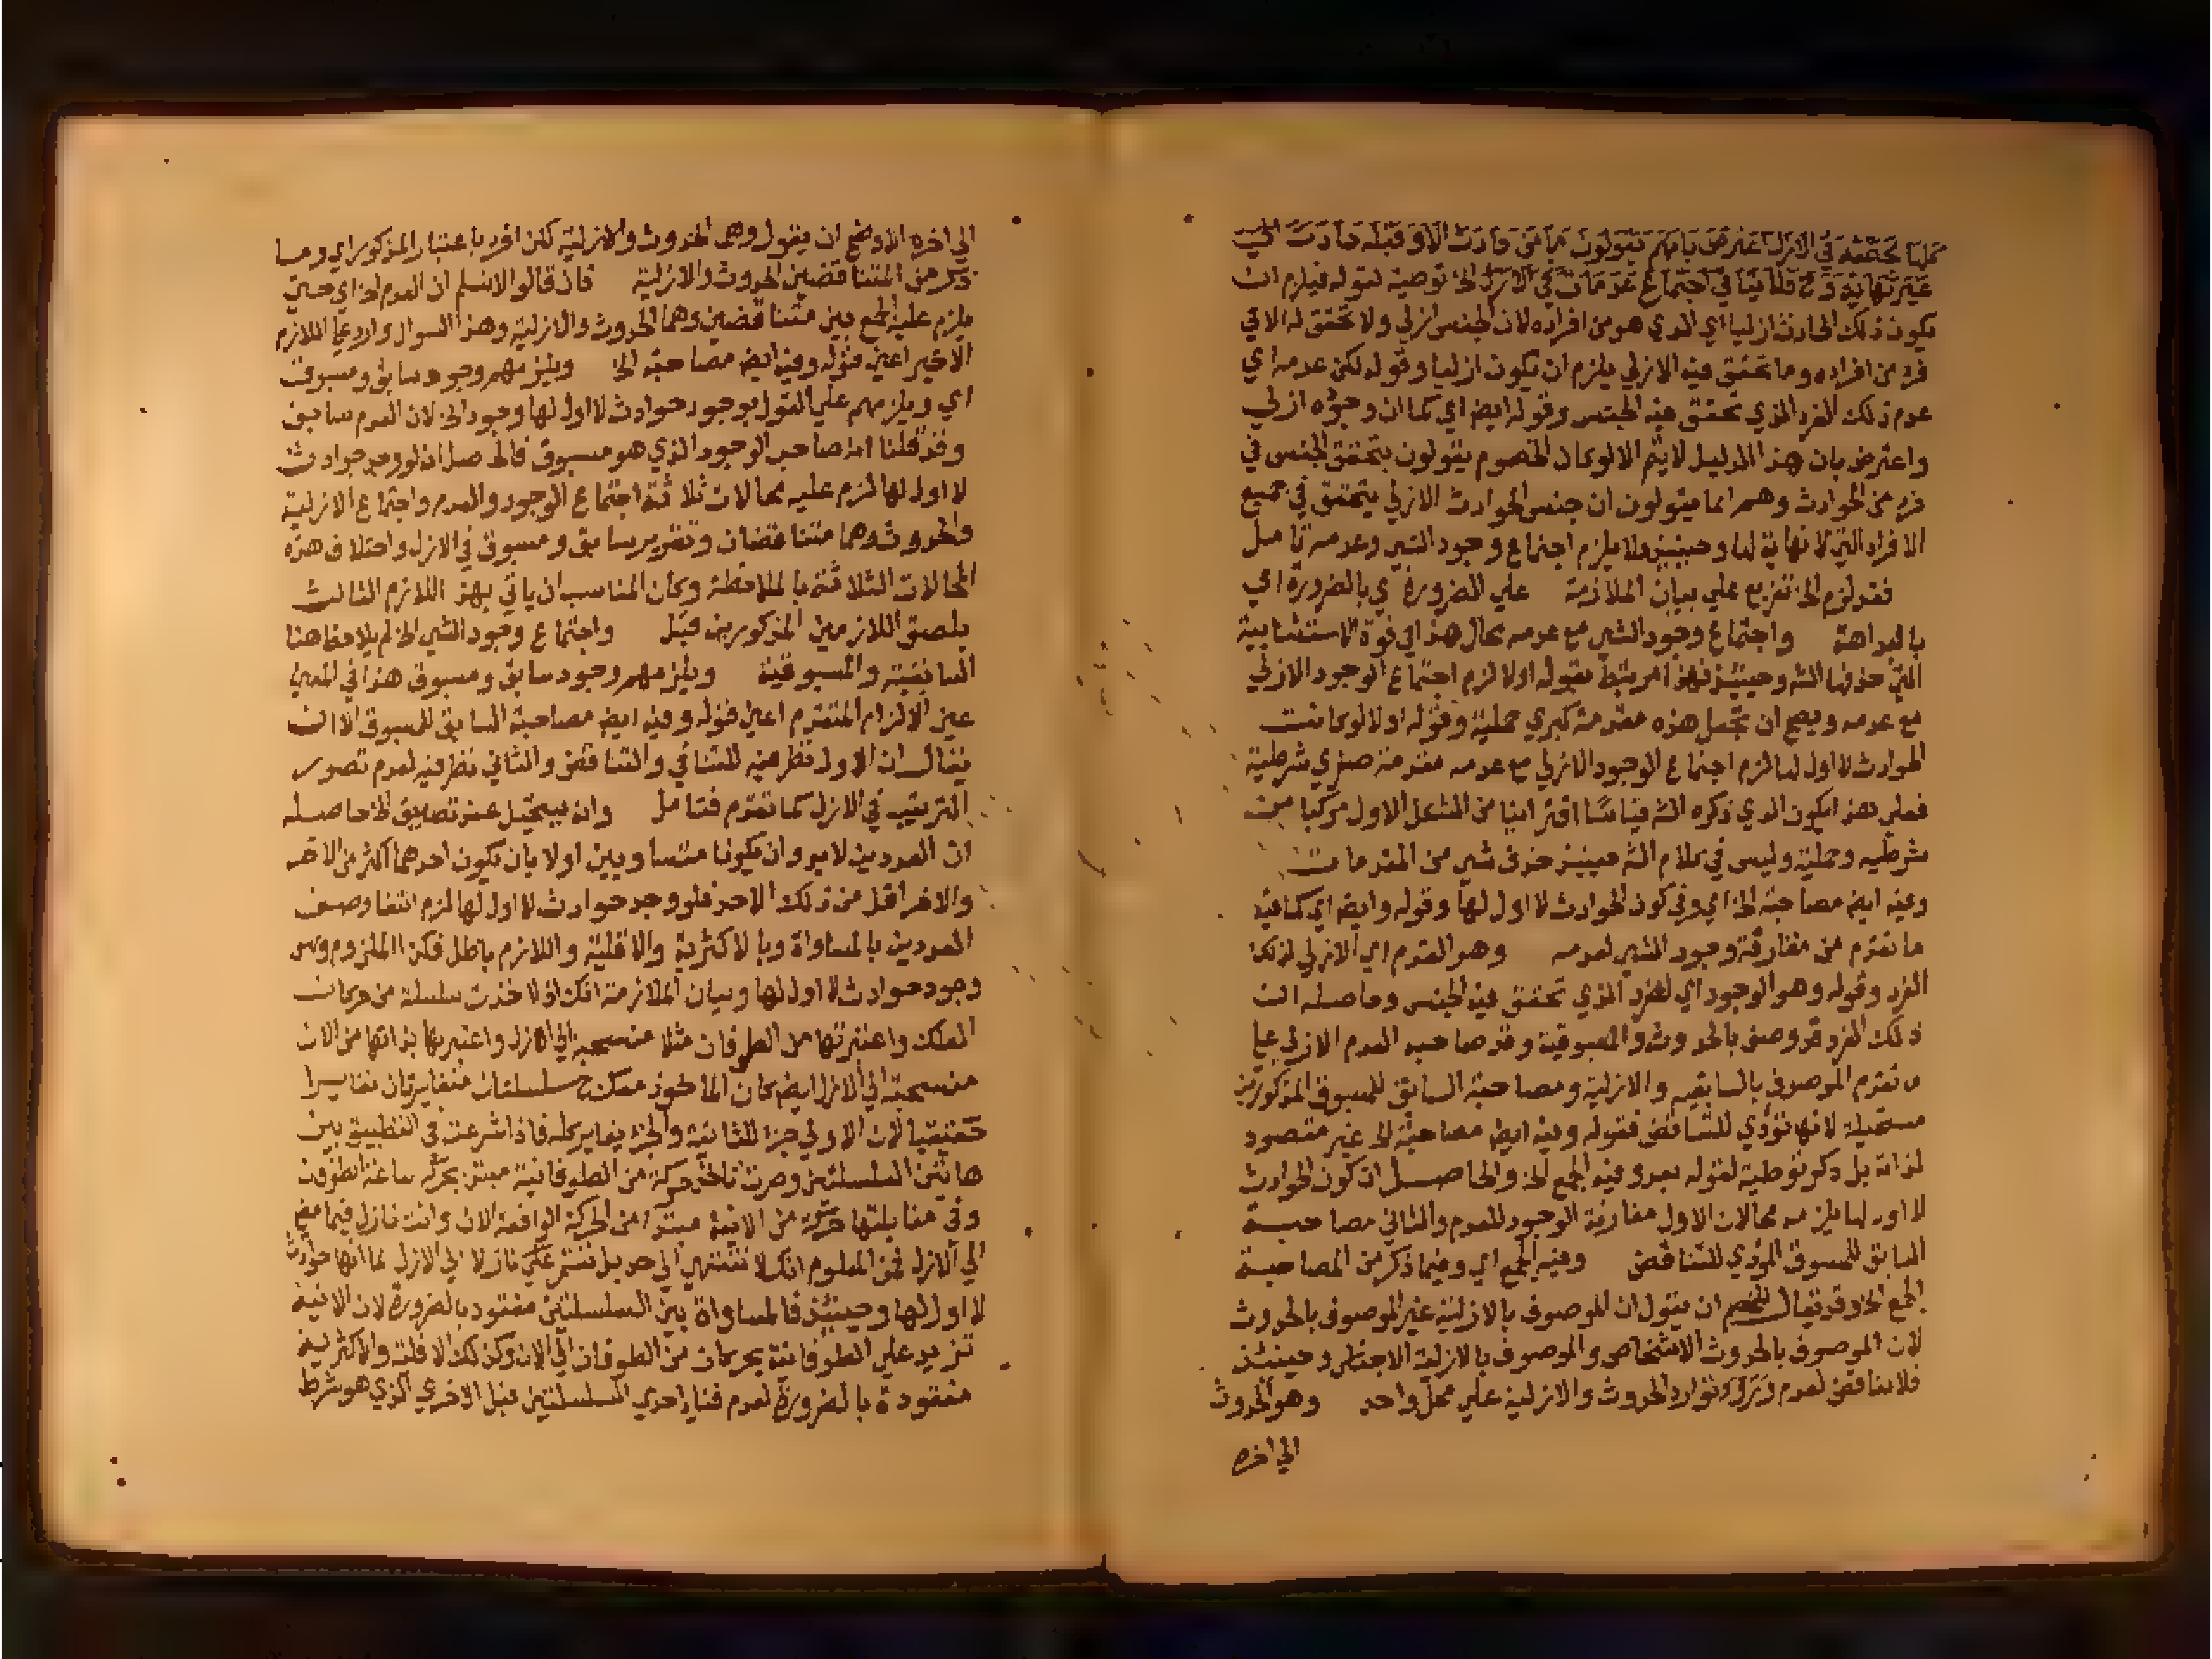 عملنا تحققه في الازل اعترض بانهم يقولون ما من حادث الا وقبله حادث الى
غير نهاية وح فلا يتاتي اجتماع عدمات في الازل الخ توصية لقوله فيلزم ان
يكون ذلك الحادث ازليا اي الذي هو من افراده لان الجنس ازلي ولا تحقق له الا في
فرد من افراده وما تحقق فيه الازلي يلزم ان يكون ازليا وقوله لكن عدمه اي
عدم ذلك الفرد الذي تحقق فيه الجنس وقوله ايض اي كما ان وجوده ازلي
واعترض بان هذا الدليل لا يتم الا لو كان الخصوم يقولون بتحقق الجنس في
فرد من الحوادث وهم انما يقولون ان جنس الحوادث الازلي يتحقق في جميع
الافراد التي لا نهاية لها وحينيذ ولا يلزم اجتماع وجود الشي وعدمه تامل
فقد لزم الخ تفريع علي بيان الملازمة علي الضرورة اي بالضرورة اي
بالبداهة واجتماع وجود الشي مع عدمه محال هذا في قوة الاستثنايية
التي حذفها الشه وحينيذ فهذا مرتبط بقوله اولا لزم اجتماع الوجود الازلي
مع عدمه ويصح ان تجعل هذه مقدمة كبري حملية وقوله اولا لو كانت
الحوادث لا اول لها لزم اجتماع الوجود الازلي مع عدمه مقدمة صغري شرطية
فعلي هذا يكون الذي ذكره الشه قياسا اقترانيا من الشكل الاول مركبا من
شرطيه وحملية وليس في كلام الشه حينيذ حذف شي من المقدمات
وفيه ايض مصاحبة الخ اي وفي كون الحوادث لا اول لها وقوله وايض اي كما فيه
ما تقدم من مقارنة وجود الشي لعدمه وهو العدم اي الازلي لذلك
الفرد وقوله وهو الوجود اي لفرد الذي تحقق فيه الجنس وحاصله ان
ذلك الفرد قد وصف بالحدوث والمسبوقية وقد صاحب العدم الازلي علي
ما تقدم الموصوف بالسابقيه والازلية ومصاحبة السابق للمسبوق المذكورين
مستحيلة لانها تؤدي للتناقض فقوله وفيه ايض مصاحبة الخ غير مقصود
لذاته بل ذكر توطية لقوله بعد وفيه الجمع الخ والحاصل ان كون الحوادث
لا اول لها يلزمه محالان الاول مقارنة الوجود للعدم والثاني مصاحبة
السابق للمسبوق المؤدي للتناقض وفيه الجمع اي وفيما ذكر من المصاحبة
الجمع الخ وقد يقال للخصم ان يقول ان الموصوف بالازلية غير الموصوف بالحدوث
لان الموصوف بالحدوث الاشخاص والموصوف بالازلية الاجناس وحينيذ
فلا تناقض لعدم توارد الحدوث والازلية علي محل واحد وهو الحدوث
الي اخره
الي اخره الاوضح ان يقول وهما الحدوث والازلية لكن افرد باعتبار المذكور اي وما
ذكر من المتناقضين الحدوث والازلية فان قالوا لا نسلم ان العدم الخ اي حتي
يلزم عليه الجمع بين متناقضين وهما الحدوث والازلية وهذا السوال وارد علي اللازم
الاخير اعني قوله وفيه ايض مصاحبة الخ ويلزمهم وجود سابق ومسبوق
اي ويلزمهم علي القول بوجود حوادث لا اول لها وجود الخ لان العدم سابق
وقد قلنا انه صاحب الوجود الذي هو مسبوق فالحاصل انه لو وجد حوادث
لا اول لها لزم عليه محالات ثلاثة اجتماع الوجود والعدم واجتماع الازلية
والحدوث وهما متناقضان وتقرير سابق ومسبوق في الازل واختلاف هذه
المحالات الثلاثة بالملاحظة وكان المناسب ان ياتي بهذا اللازم الثالث
بلصق اللازمين المذكورين قبل واجتماع وجود الشي الخ لم يلاحظ هنا
السابقية والمسبوقية ويلزمهم وجود سابق ومسبوق هذا في المعني
عين الالزام المتقدم اعني قوله وفيه ايض مصاحبة السابق للمسبوق الا ان
يقال ان الاول نظر فيه للتنافي والتناقض والثاني نظر فيه لعدم تصور
الترتيب في الازل كما تقدم فتامل وانه يستحيل عند تصديق الخ حاصله
ان العددين لابد وان يكونا متساويين اولا بان يكون احدهما اكثر من الاخر
والاخر اقل من ذلك الاحد فلو وجد حوادث لا اول لها لزم انتفا وصف
العددين بالمساواة وبالاكثرية والاقلية واللازم باطل فكذا الملزوم وهو
وجود حوادث لا اول لها وبيان الملازمة انك اذا اخذت سلسلة من حركات
الفلك واعتبرتها من الطوفان مثلا منسحبة الي الازل واعتبرتها بذاتها من الان
منسحبة الي الازل ايض كان الماخوذ معك ح سلسلتان متغايرتان تغايرا
حقيقيا لان الاولي جزء للثانية والجزء يغاير كله فاذا شرعت في التطبيق بين
هاتين السلسلتين وصرت تاخذ حركة من الطوفانية مبتدء بحركة ساعة الطوفان
وفي مقابلتها حركة من الانية مبتدء من الحركة الواقعة الان وانت نازل فيما مضي
الي الازل فمن المعلوم انك لا تنتهي الي حد بل تستمر علي نازلا الي الازل لما انها حوادث
لا اول لها وحينيذ فالمساواة بين السلسلتين مفقود بالضرورة لان الانية
تزيد علي الطوفانية بحركات من الطوفان الي الان وكذلك الاقلت والاكثرية
مفقودة بالضرورة لعدم فناء احدي السلسلتين قبل الاخري الذي هو شرط